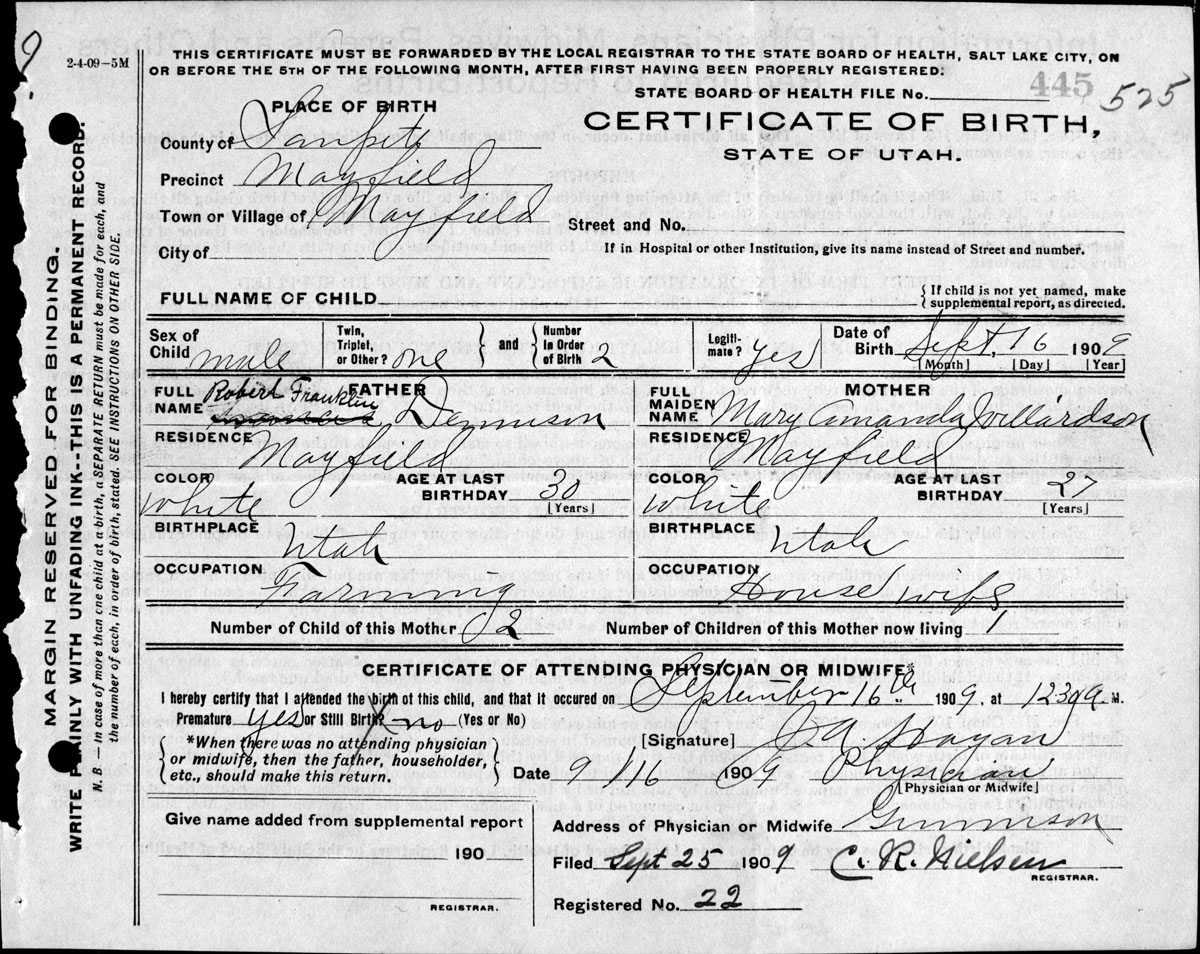 2-4-09—5M
THIS CERTIFICATE MUST BE FORWARDED BY THE LOCAL REGISTRAR TO THE STATE BOARD OF HEALTH, SALT LAKE CITY, ON
OR BEFORE THE 5TH OF THE FOLLOWING MONTH, AFTER FIRST HAVING BEEN PROPERLY REGISTERED:
445 525
STATE BOARD OF HEALTH FILE No.
CERTIFICATE OF BIRTH,
STATE OF UTAH.
PLACE OF BIRTH
County of Sanpete
Precinct Mayfield
Town or Village of Mayfield
City of
Street and No.
If in Hospital or other Institution, give its name instead of Street and number.
FULL NAME OF CHILD
If child is not yet named, make
supplemental report, as directed.
Sex of Child male
Twin, Triplet, or Other? one
and
Number in Order of Birth 2
Legiti-mate? yes
Date of Birth Sept, 16 1909
[Month] [Day] [Year]
FATHER
FULL NAME Robert Franklin Dennison
RESIDENCE Mayfield
COLOR White
AGE AT LAST BIRTHDAY 30 [Years]
BIRTHPLACE Utah
OCCUPATION Farming
MOTHER
FULL MAIDEN NAME Mary Amanda Willardson
RESIDENCE Mayfield
COLOR White
AGE AT LAST BIRTHDAY 27 [Years]
BIRTHPLACE Utah
OCCUPATION House wife
Number of Child of this Mother 2
Number of Children of this Mother now living 1
CERTIFICATE OF ATTENDING PHYSICIAN OR MIDWIFE*
I hereby certify that I attended the birth of this child, and that it occured on September 16th 1909, at M.
Premature yes or Still Birth? no (Yes or No)
*When there was no attending physician
or midwife, then the father, householder,
etc., should make this return.
[Signature] Hagan
Date 9/16 1909 Physician
[Physician or Midwife]
Give name added from supplemental report
190
REGISTRAR.
Address of Physician or Midwife Gunnison
Filed Sept 25 1909 C. R. Nielsen
REGISTRAR.
Registered No. 22
MARGIN RESERVED FOR BINDING.
WRITE PLAINLY WITH UNFADING INK--THIS IS A PERMANENT RECORD.
N. B.—In case of more than one child at a birth, a SEPARATE RETURN must be made for each, and
the number of each, in order of birth, stated. SEE INSTRUCTIONS ON OTHER SIDE.